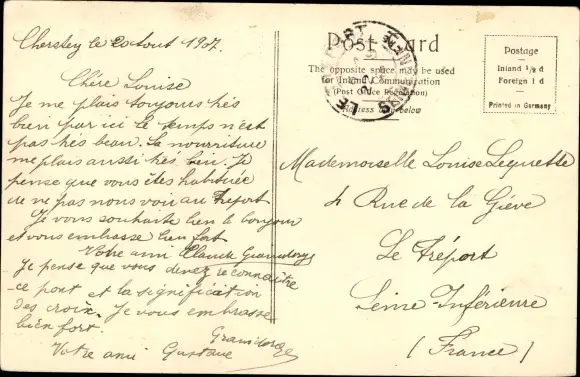 Chertsey le 20 Aout 1907.
Chère Louise
Je me plais toujours très
bien par ici le temps n'est
pas très beau. La nourriture
me plais aussi très bien. Je
pense que vous êtes habituée
de ne pas nous voir au Tréport
Je vous souhaite bien le bonjour
et vous embrasse bien fort
Votre ami Claude Grandorge
Je pense que vous devez reconnaître
ce pont et la signification
des croix. Je vous embrasse
bien fort.
Votre ami Gustave Grandorge
Post Card
The opposite space may be used
for Inland Communication
(Post Office Regulation)
Address only below
Postage
Inland 1/2 d
Foreign 1 d
Printed in Germany
Mademoiselle Louise Lequette
4 Rue de la Giève
Le Tréport
Seine Inférieure
(France)